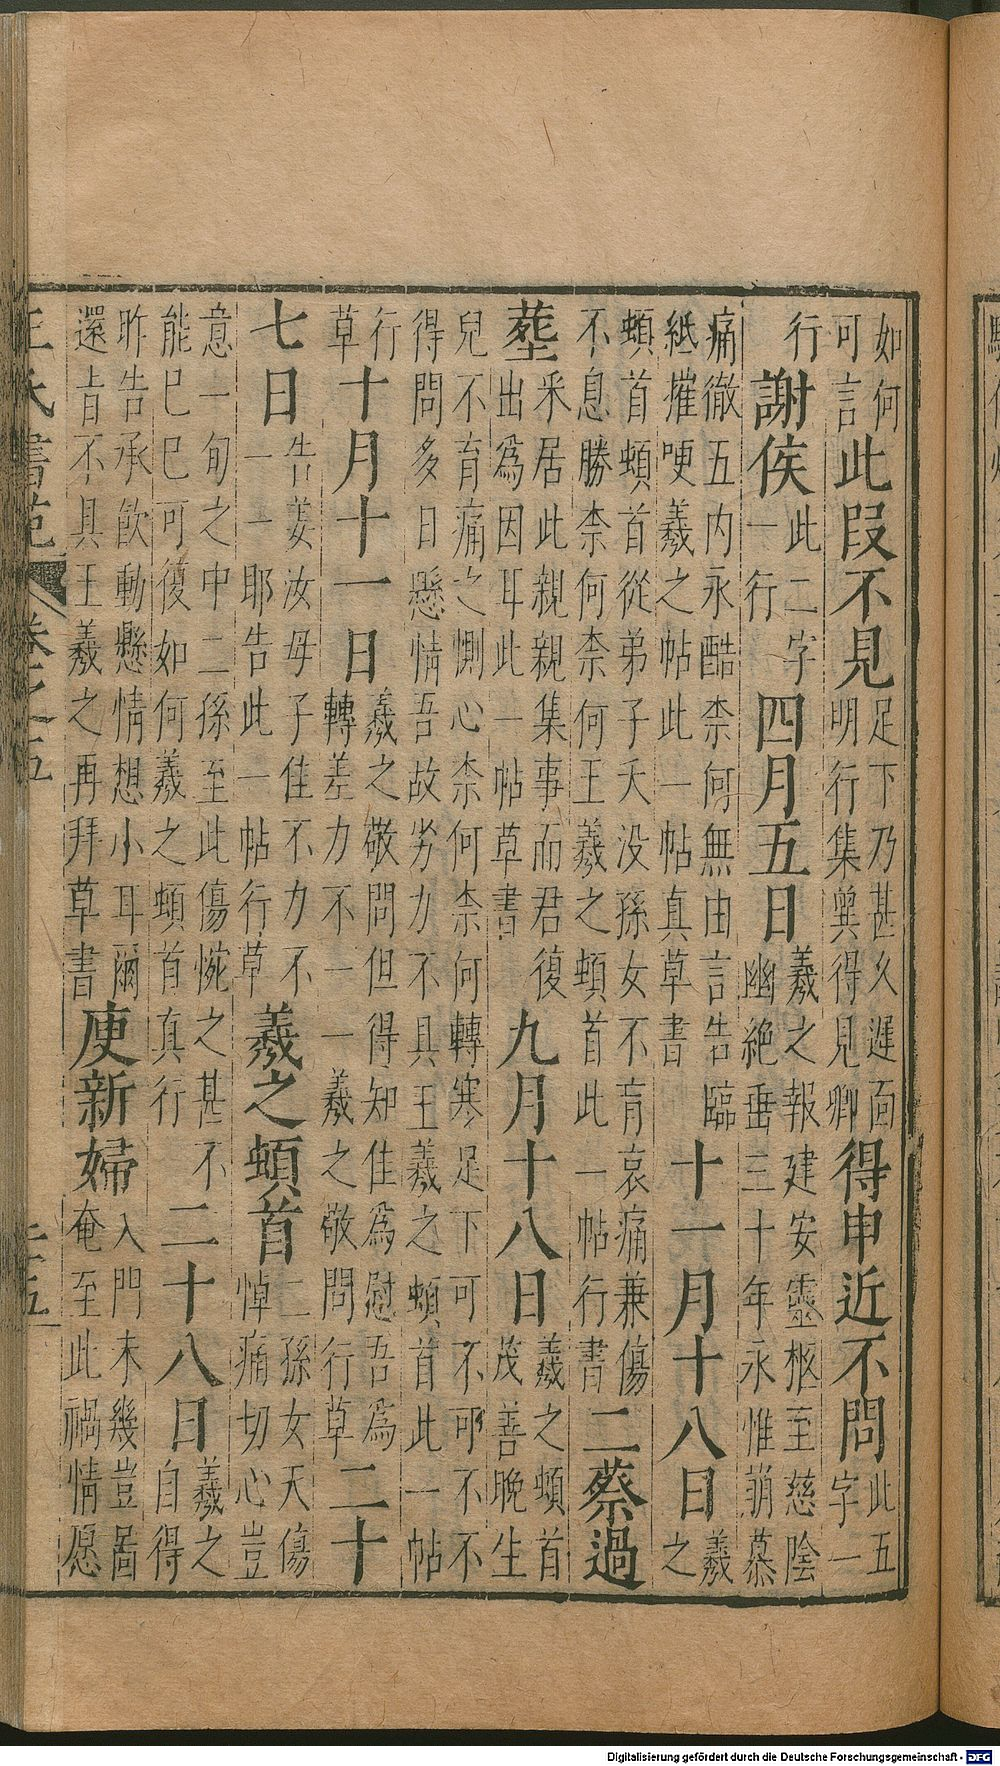 如何
可言
此叚不見
足下乃甚久遲面
明行集㒷得見卿
得申近不問
此五
字一
行
謝侯
此二字
一行
四月五日
羲之報建安靈柩至慈陰
幽絶垂三十年永惟崩慕
痛徹五内永酷柰何無由言告臨
紙摧哽羲之帖此一帖真草書
十一月十八日
羲
之
頓首頓首從弟子夭没孫女不育哀痛兼傷
不息勝柰何柰何王羲之頓首此一帖行書
二蔡過
塟
釆居此親親集事而君復
出爲因耳此一帖草書
九月十八日
羲之頓首
茂善晚生
兒不育痛之惻心柰何柰何轉寒足下可不可不不
得問多日懸情吾故劣力不具王羲之頓首此一帖
行
草
十月十一日
羲之敬問但得知佳爲慰吾爲
轉差力不一一羲之敬問行草
二十
七日
告姜汝母子佳不力不
一一耶告此一帖行草
羲之頓首
二孫女夭傷
悼痛切心豈
意一旬之中二孫至此傷惋之甚不
能巳巳可復如何羲之頓首真行
二十八日
羲之
自得
昨告承飲動懸情想小耳爾
還旨不具王羲之再拜草書
庾新婦
入門未幾豈啚
奄至此禍情愿
王氏書苑
卷之五
Digitalisierung gefördert durch die Deutsche Forschungsgemeinschaft - DFG